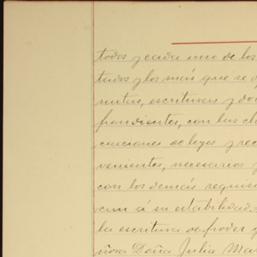 todos y cada uno de los
tados y los más que se
nutas, escrituras y do
fiandientes, con las cl
cunciones de leyes y rec
venientes, necesarios
con los demás requisi
cen á su estabilidad.
la escritura de poder
ñora Doña Julia Ma